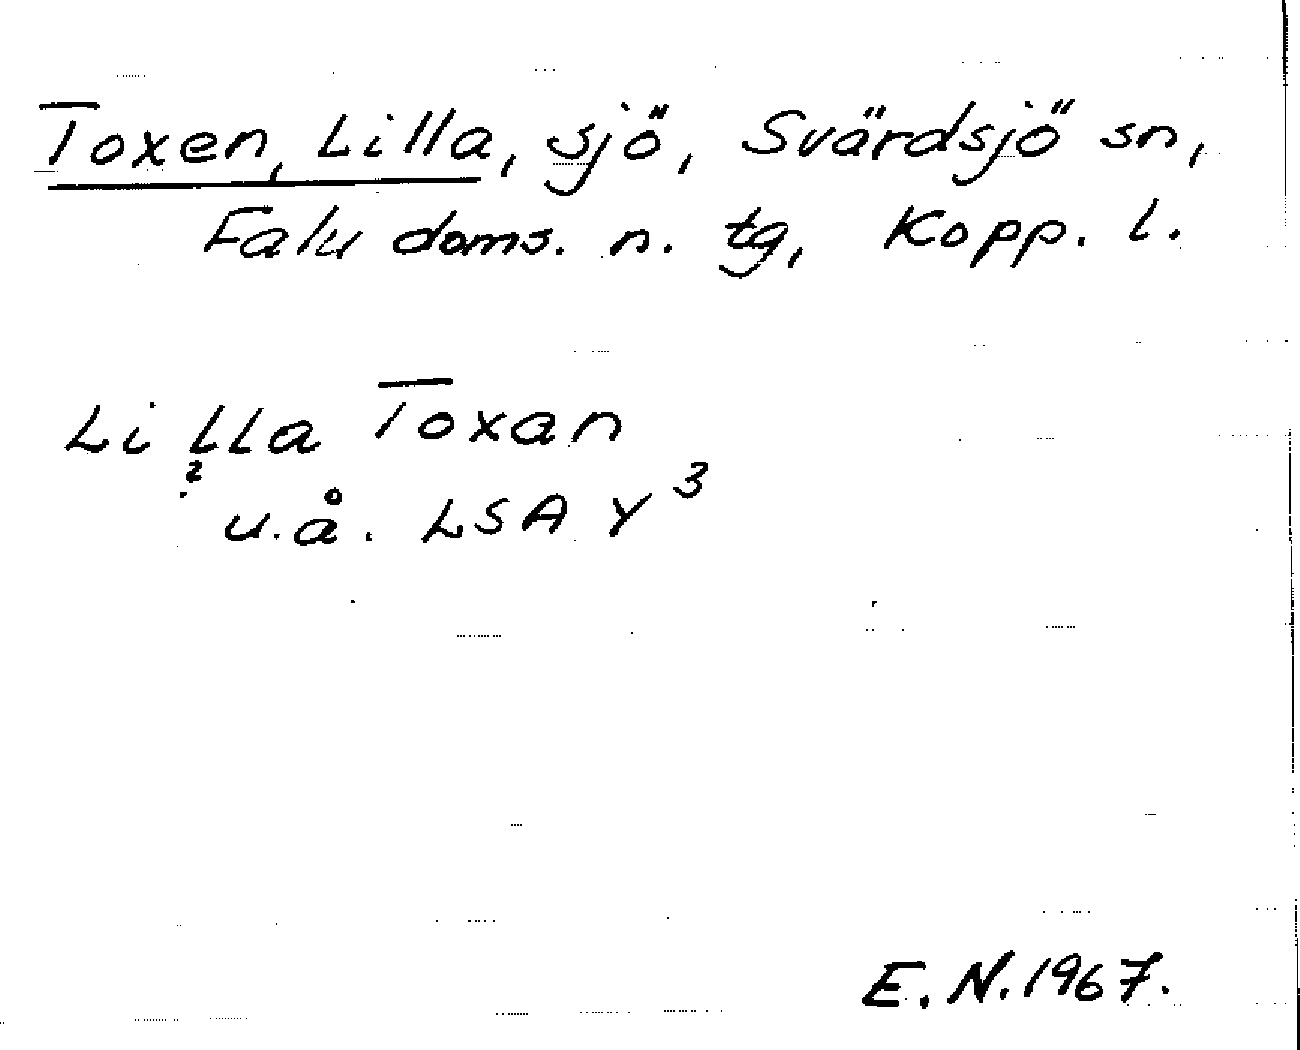 Toxen, Lilla, sjö, Svärdsjö sn,
Falu doms. n. tg, Kopp. l.
Lilla Toxan
u.å. LSA Y³
E.N. 1967.